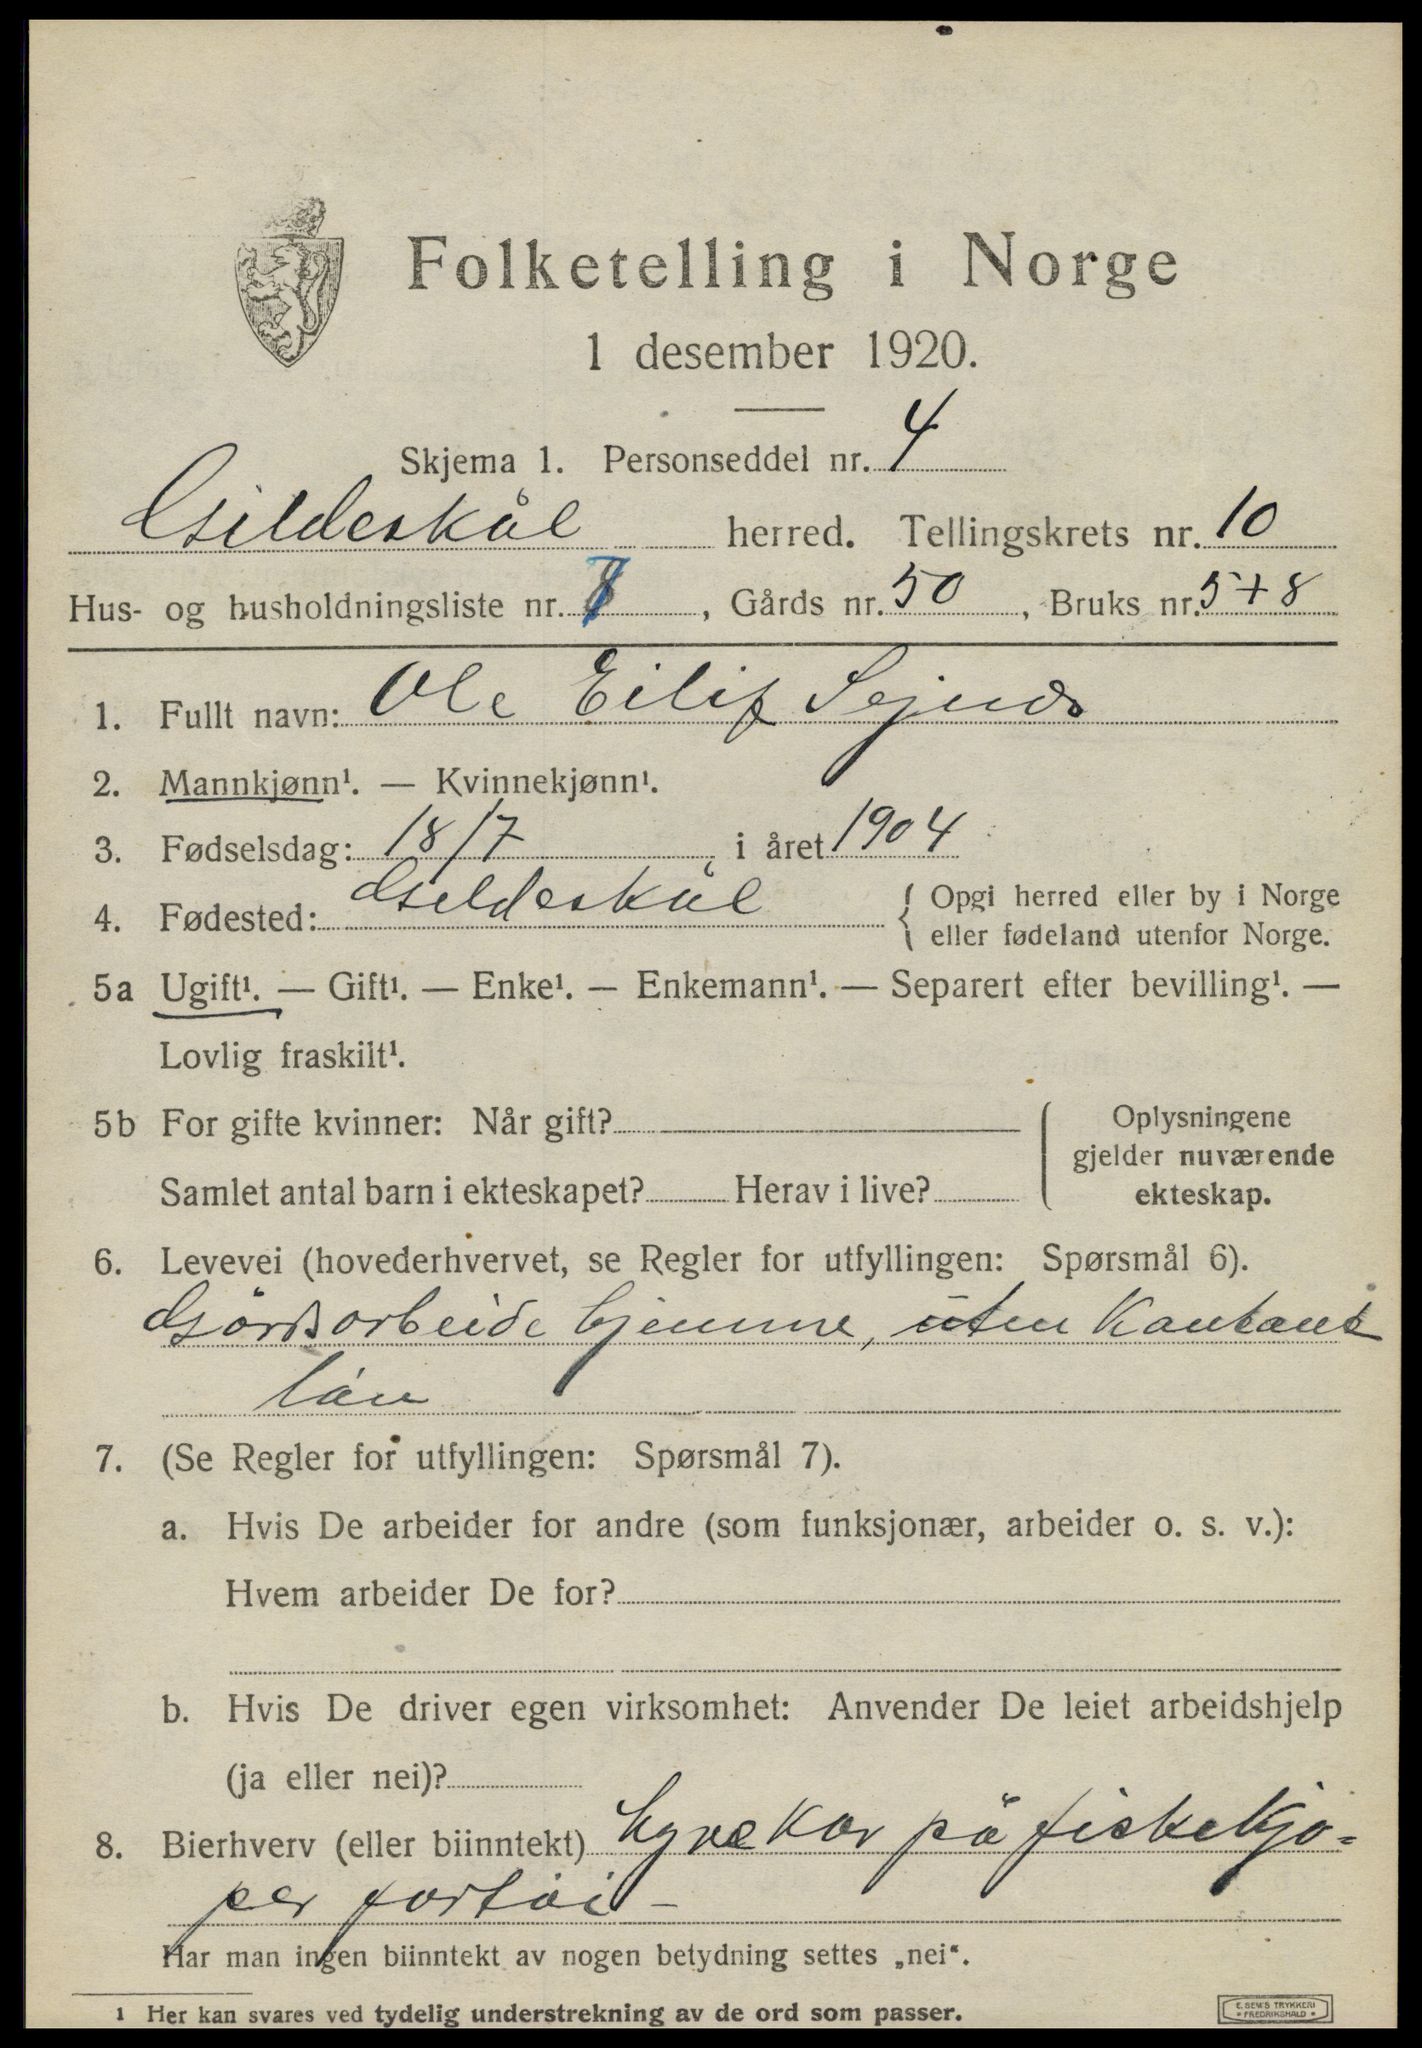 Folketelling i Norge
1 desember 1920.
Skjema 1. Personseddel nr. 4
Gildeskål herred. Tellingskrets nr. 10
Hus- og husholdningsliste nr. 7, Gårds nr. 50, Bruks nr. 5+8
1. Fullt navn: Ole Eilif
2. Mannkjønn¹. — Kvinnekjønn¹.
3. Fødselsdag: 18/7 i året 1904
4. Fødested: Gildeskål { Opgi herred eller by i Norge
eller fødeland utenfor Norge.
5a Ugift¹. — Gift¹. — Enke¹. — Enkemann¹. — Separert efter bevilling¹. —
Lovlig fraskilt¹.
5b For gifte kvinner: Når gift?
Samlet antal barn i ekteskapet? Herav i live?
Oplysningene
gjelder nuværende
ekteskap.
6. Levevei (hovederhvervet, se Regler for utfyllingen: Spørsmål 6).
Gårdsarbeide hjemme, uten Kontant
lön
7. (Se Regler for utfyllingen: Spørsmål 7).
a. Hvis De arbeider for andre (som funksjonær, arbeider o. s. v.):
Hvem arbeider De for?
b. Hvis De driver egen virksomhet: Anvender De leiet arbeidshjelp
(ja eller nei)?
8. Bierhverv (eller biinntekt) på fiskekjö-
per fartöi -
Har man ingen biinntekt av nogen betydning settes „nei“.
1 Her kan svares ved tydelig understrekning av de ord som passer.
E. SEM'S TRYKKERI
FREDRIKSHALD